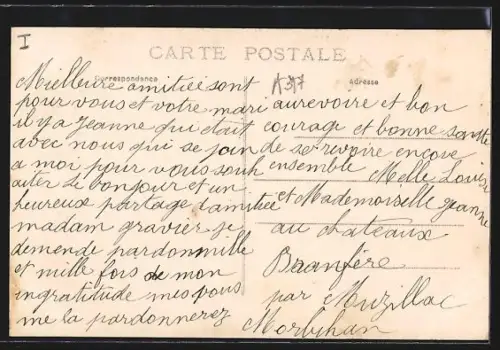 I
CARTE POSTALE
Correspondance
Adresse
A 387
Mielleure amitieé sont
pour vous et votre mari
il y a Jeanne qui etait
avec nous qui se join
a moi pour vous souh
aiter le bonjour et un
heureux partage d'amitiee
madam gravier je
demende pardon mille
et mille fois de mon
ingratitude mes vous
me la pardonnerez
aurevoire et bon
courage et bonne sante
de se revoire encore
ensemble Melle Louise
et Mademoiselle Jeanne
au chateaux
Branfére
par Muzillac
Morbihan